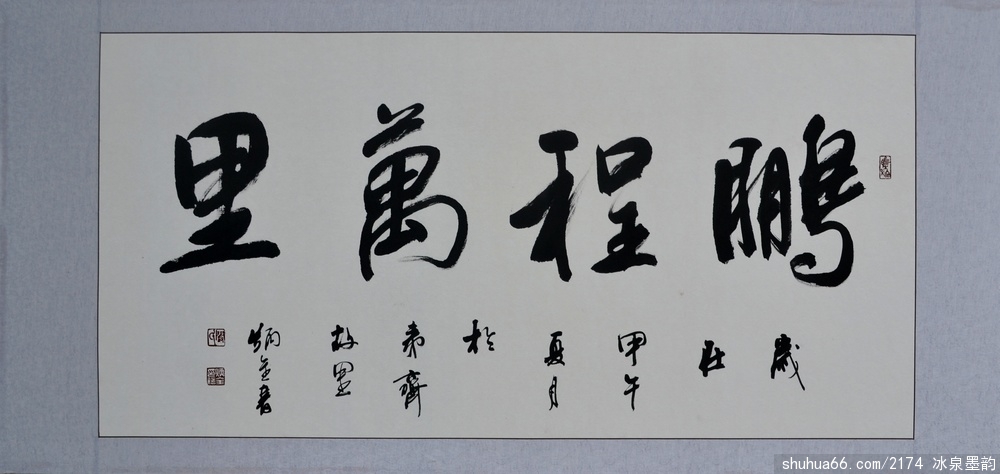 鹏程萬里
歲
在
甲午
夏月
於
夷齊
故里
炳金書
shuhua66.com/2174 冰泉墨韵